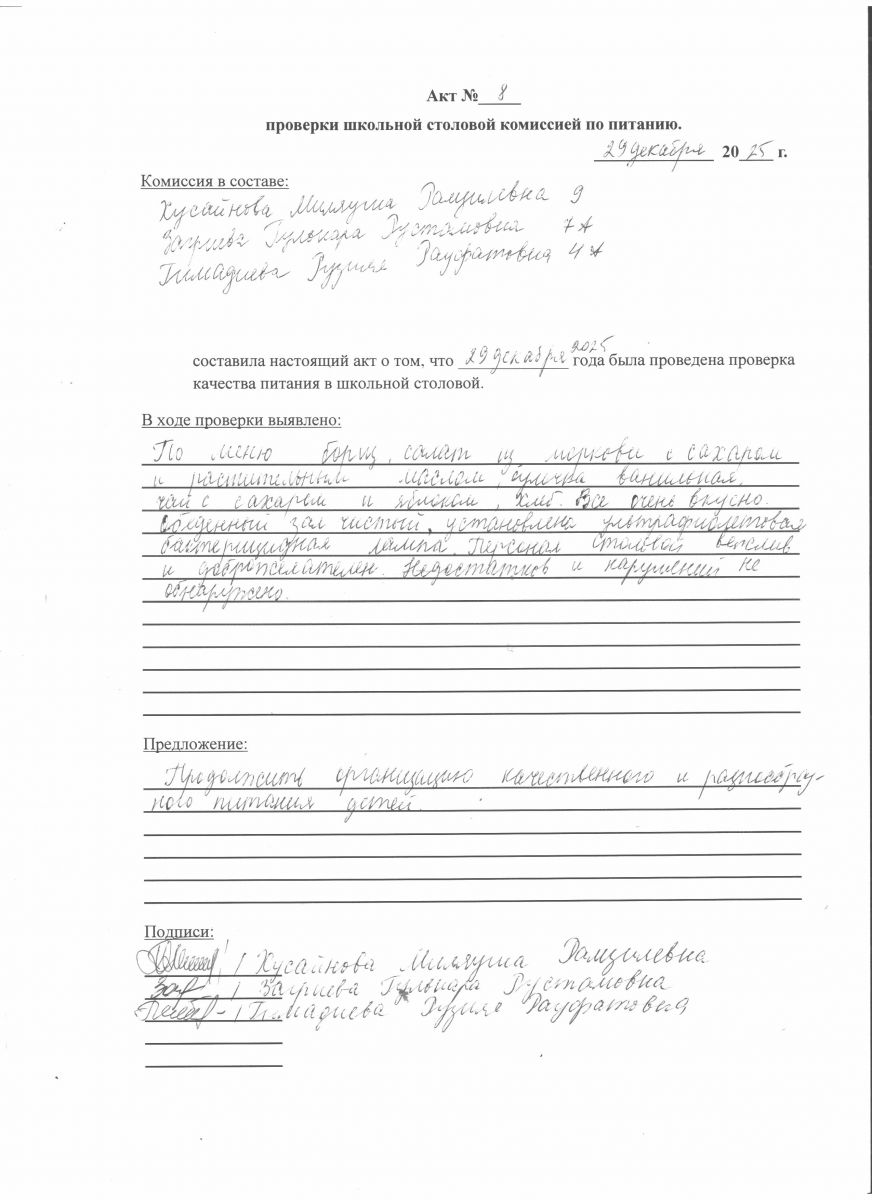 Акт № 8
проверки школьной столовой комиссией по питанию.
29 декабря 20 25 г.
Комиссия в составе:
Хусайнова Миляуша Рамзилевна 9
Загриева Гульнара Рустамовна 7 А
Гимадиева Рузиля Рауфатовна 4 А
2025
составила настоящий акт о том, что 29 декабря года была проведена проверка
качества питания в школьной столовой.
В ходе проверки выявлено:
По меню борщ, салат из моркови с сахаром
и растительным маслом, булочка ванильная,
чай с сахаром и яблоком, хлеб. Все очень вкусно.
Обеденный зал чистый, установлена ультрафиолетовая
бактерицидная лампа. Персонал столовой вежлив
и доброжелателен. Недостатков и нарушений не
обнаружено.
Предложение:
Продолжить организацию качественного и разнообраз-
ного питания детей.
Подписи:
/ Хусайнова Миляуша Рамзилевна
/ Загриева Гульнара Рустамовна
/ Гимадиева Рузиля Рауфатовна